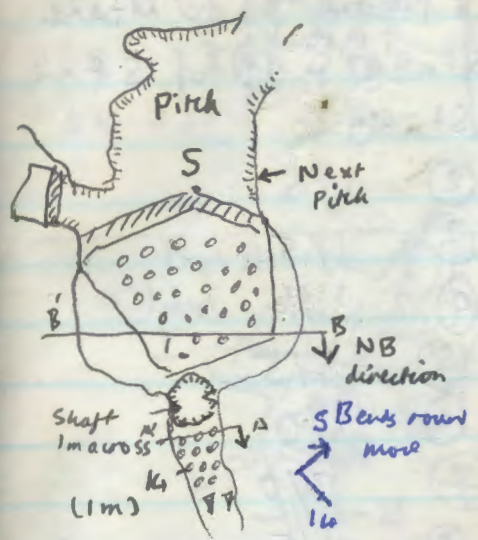 Pitch
5
← Next
Pitch
B'
B
NB
direction
Shaft
1m across
A' A
14
(1m)
5 Bends round
more
14